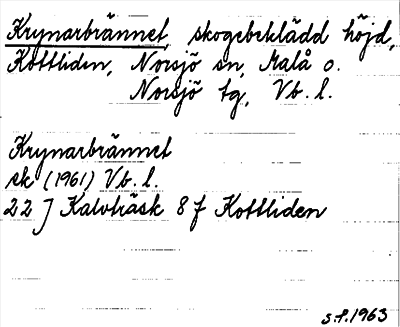 Krynarbrännet skogsbeklädd höjd,
Kottliden, Norsjö sn, Malå o.
Norsjö tg, Vb. l.
Krynarbrännet
ek (1961) Vb. l.
22 J Kalvträsk 8 f Kottliden
s.f. 1963